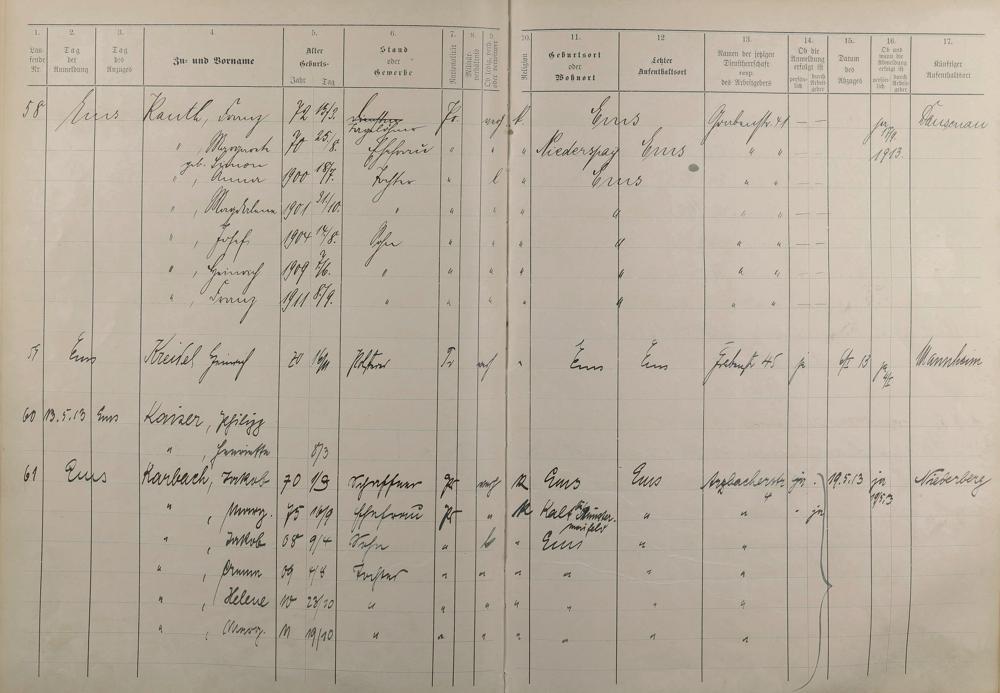 1. 2. 3. 4. 5. 6. 7. 8. 9. 10. 11. 12 13. 14. 15. 16. 17.
Lau- fende Nr. Tag der Anmeldung Tag des Anzuges Zu- und Vorname Alter Geburts- Jahr Tag Stand oder Gewerbe Nationalität Militär- verhältnis Ob ledig, verh. oder verwitwet Religion Geburtsort oder Wohnort Letzter Aufenthaltsort Namen der jetzigen Dienstherrschaft resp. des Arbeitgebers Ob die Anmeldung erfolgt ist persön- lich durch Arbeit- geber Datum des Abzuges Ob und wann die Abmeldung erfolgt ist persön- lich durch Arbeit- geber Künftiger Aufenthaltsort
58 Ems Kauth, Franz 72 Tagelöhner Pr. verh k. Ems Grabenstr. 41 ja 17/9 1913 Dausenau
" Margareth 70 25/8. Ehefrau " " " Niederspay Ems " "
geb. Simon
" , Anna 1900 18/7. Tochter " l " Ems " "
" , Magdalena 1901 31/10. " " " " " " "
" , Josef 1904 Sohn " " " " " "
" , Heinrich 1909 7/6. " " " " " " "
" , Franz 1911 8/9. " " " " " " "
59 Ems Kreidel Heinrich 70 Pr verh " Ems Ems 45 ja 13 ja Mannheim
60 13.5.13 Ems Kaiser, Philipp
" , Henriette 8/3
61 Ems Karbach, Jakob 70 1/3 Schaffner Pr verh k Ems Ems Arzbacherstr. 4 ja . 19.5.13 ja 19.5.13 Niederberg
" , Marg. 75 10/9 Ehefrau Pr " k Kalt Münster- maifeld " " " ja
" , Jakob 08 9/4 Sohn " l " Ems " "
" , Anna 09 4/8 Tochter " " " " " "
" , Helene 10 23/10 " " " " " "
" , Marg. 11 19/10 " " " " " " "